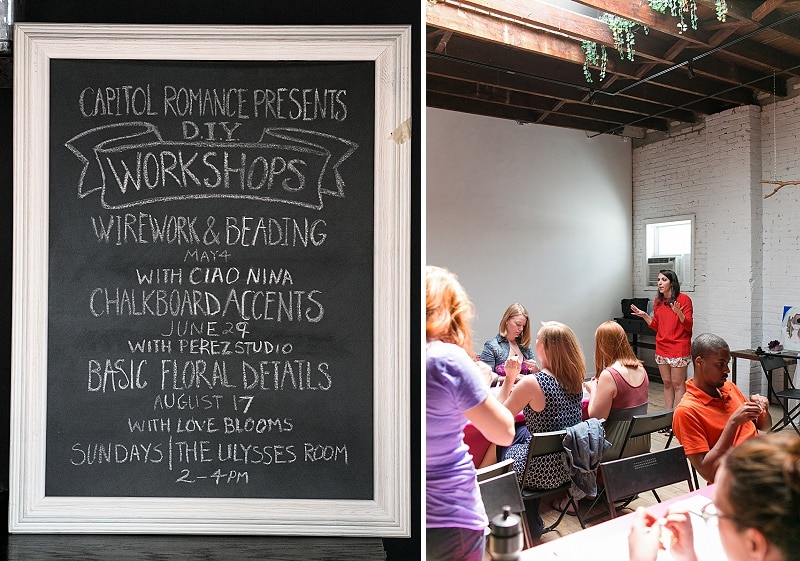 CAPITOL ROMANCE PRESENTS
DIY
WORKSHOPS
WIREWORK & BEADING
MAY 4
WITH CIAO NINA
CHALKBOARD ACCENTS
JUNE 29
WITH PEREZ STUDIO
BASIC FLORAL DETAILS
AUGUST 17
WITH LOVE BLOOMS
SUNDAYS | THE ULYSSES ROOM
2-4PM